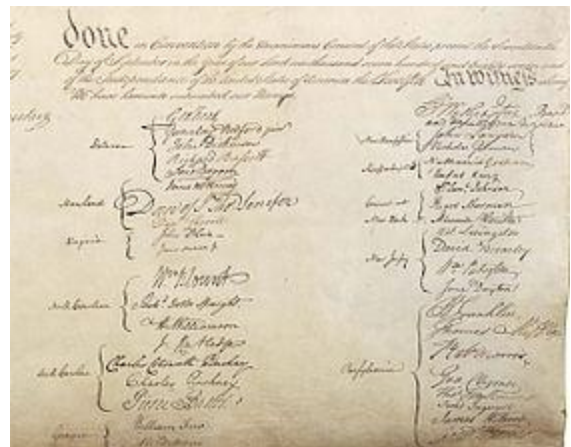 done in Convention by the Unanimous Consent of the States present the Seventeenth
Day of September in the Year of our Lord one thousand seven hundred and
of the Independance of the United States of America the Twelfth In witness
We have hereunto subscribed our Names,
Delaware
Geo: Read
Gunning Bedford jun
John Dickinson
Richard Bassett
Jaco: Broom
Maryland
James McHenry
Dan of St Thos Jenifer
Danl Carroll
Virginia
John Blair
North Carolina
Wm Blount
Richd Dobbs Spaight
Hu Williamson
South Carolina
J. Rutledge
Charles Cotesworth Pinckney
Charles Pinckney
Pierce Butler
Georgia
William Few
Go Washington Presidt
and deputy from Virginia
New Hampshire
John Langdon
Nicholas Gilman
Massachusetts
Nathaniel Gorham
Rufus King
Connecticut
Wm Saml Johnson
Roger Sherman
New York
Alexander Hamilton
New Jersey
Wil: Livingston
David Brearley
Wm Paterson
Jona: Dayton
Pensylvania
B Franklin
Thomas Mifflin
Robt Morris
Geo. Clymer
Thos
Jared Ingersoll
James Wilson